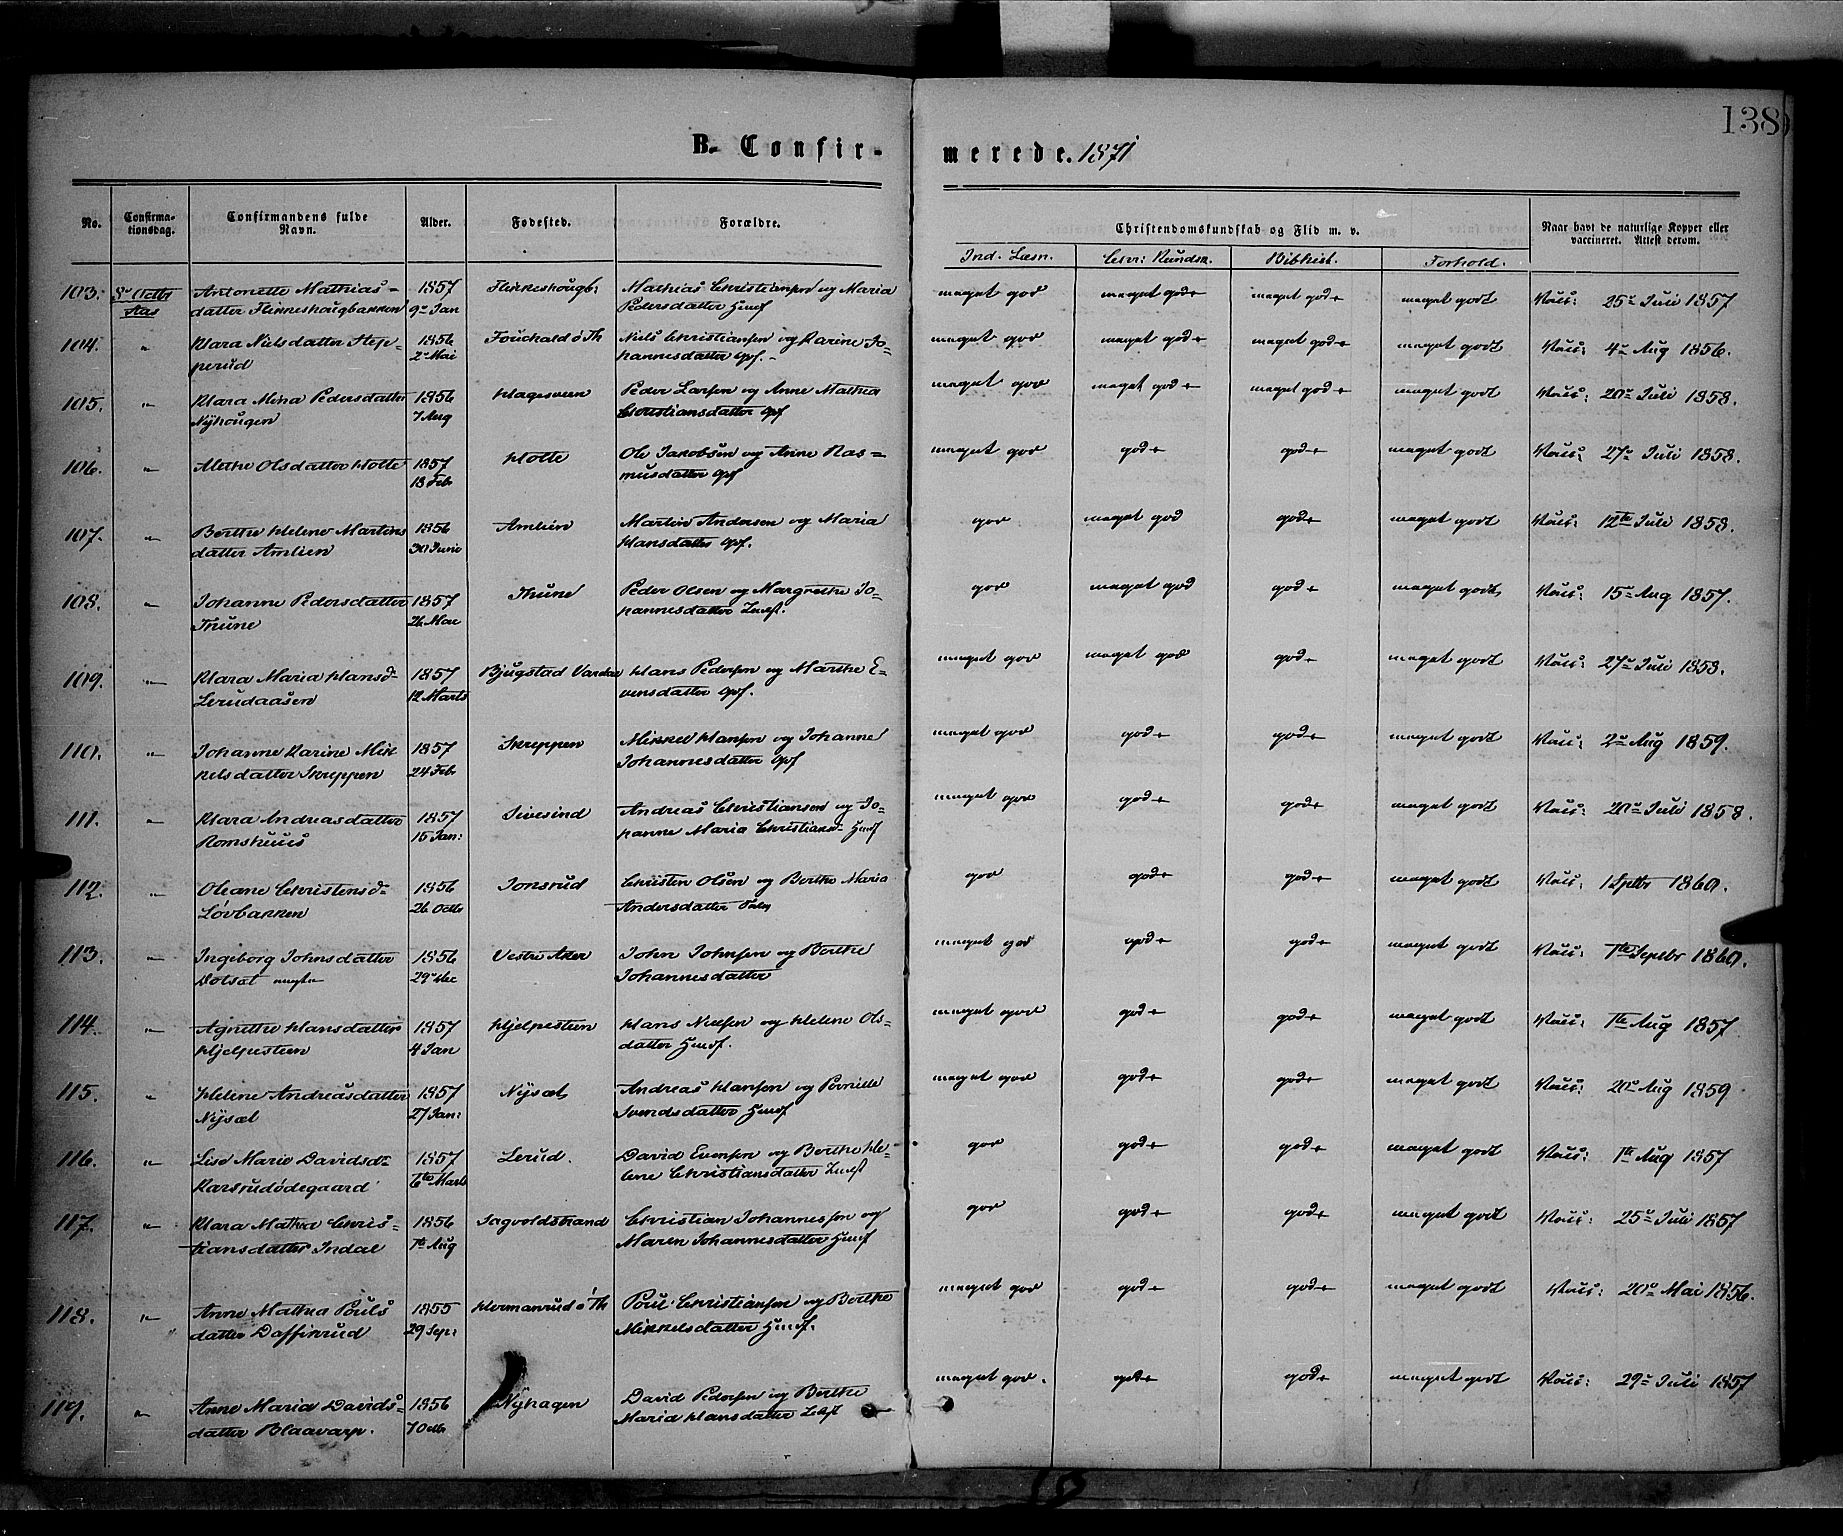 138
B. Confir-
merede. 1871
No.
Confirma-
tionsdag.
Confirmandens fulde
Navn.
Alder.
Fødested.
Forældre.
Christendomskundskab og Flid m. v.
Naar havt de naturlige Kopper eller
vaccineret. Attest derom.
Ind. Læsn.
Chr: Kundsk.
Bibhist.
Forhold.
103. 8de Octbr Antonette Mathias- 1857 Mathias Christiansen og Maria meget god meget god meget god meget godt Vacc: 25de Juli 1857
Aas datter Flikkeshougbakken 9de Jan Pedersdatter Husf
104. " Klara Nielsdatter Step- 1856 Niels Christiansen og Karine Jo- meget god meget god meget god meget godt Vacc: 4de Aug 1856.
perud 2de Mai hannesdatter Gpf.
105. " Klara Mina Pedersdatter 1856 Hagesveen Peder Larsen og Anne Mathea meget god meget god meget god meget godt Vacc: 20de Juli 1858.
Nyhougen 7 Aug Christiansdatter Gpf
106. " Mathe Olsdatter Hotte 1857 Hotte Ole Jakobsen og Anne Ras- meget god god god meget godt Vacc: 27de Juli 1858.
18 Feb musdatter Gpf
107. " Berthe Helene Martins 1856 Amlien Martin Andersen og Maria god meget god god meget godt Vacc: 12te Juli 1858.
datter Amlien 30 Juni Hansdatter Gpf.
108. " Johanne Pedersdatter 1857 Thune Peder Olsen og Margrethe Jo- god meget god god meget godt Vacc: 15de Aug 1857.
Thune 26 Mai hannesdatter
109. " Klara Maria Hansd 1857 Bjugstad Vardal Hans Pedersen og Marthe E- meget god meget god god meget godt Vacc: 27de Juli 1858.
Lerudaasen 12 Marts vensdatter Gpf.
110. " Johanne Karine Mik 1857 Skreppen Mikkel Hansen og Johanne meget god god god meget godt Vacc: 2de Aug 1859.
kelsdatter Skreppen 24 Feb Johannesdatter Gpf
111. " Klara Andreasdatter 1857 Sivesind Andreas Christiansen og Jo- meget god god god meget godt Vacc: 20de Juli 1858.
Romshuus 15 Jan: hanne Maria Christiansd Husf
112. " Oleane Christensd 1856 Jonsrud Christen Olsen og Berthe Maria god god god meget godt Vacc: 1 Septbr 1860.
Løvbakken 26 Octbr Andersdatter
113. " Ingeborg Johnsdatter 1856 Vestre Aker John Johnsen og Berthe meget god god god meget godt Vacc: 7de Septbr 1860.
29 Dec Johannesdatter
114. " Agnethe Hansdatter 1857 Hjelpesteen Hans Nielsen og Helene Ols- meget god god god meget godt Vacc: Aug 1857.
Hjelpesteen 4 Jan datter Husf.
115. " Helene Andreasdatter 1857 Nysæt Andreas Hansen og Pernille meget god god god meget godt Vacc: 20de Aug 1859
Nysæt 27 Jan: Svendsdatter Husf
116. " Lise Marie Davidsd 1857 Lerud. David Evensen og Berthe He- god god god meget godt Vacc: Aug 1857
Karsrudødegaard 6te Marts lene Christiansdatter
117. " Klara Mathea Chris- 1856 Sagvoldstrand Christian Johannessen og god god god meget godt Vacc: 25de Juli 1857
tiansdatter Indal Aug Maren Johannesdatter Husf
118. " Anne Mathea Pouls 1855 Hermanrud ø Th Poul Christiansen og Berthe meget god god god meget godt Vacc: 20de Mai 1856.
datter Daffinrud 29 Sep: Mikkelsdatter Husf.
119. " Anne Maria Davids- 1856 Nyhagen David Pedersen og Berthe meget god. god god meget godt Vacc: 29de Juli 1857
datter Blaavarp. 7 Octb Maria Hansdatter